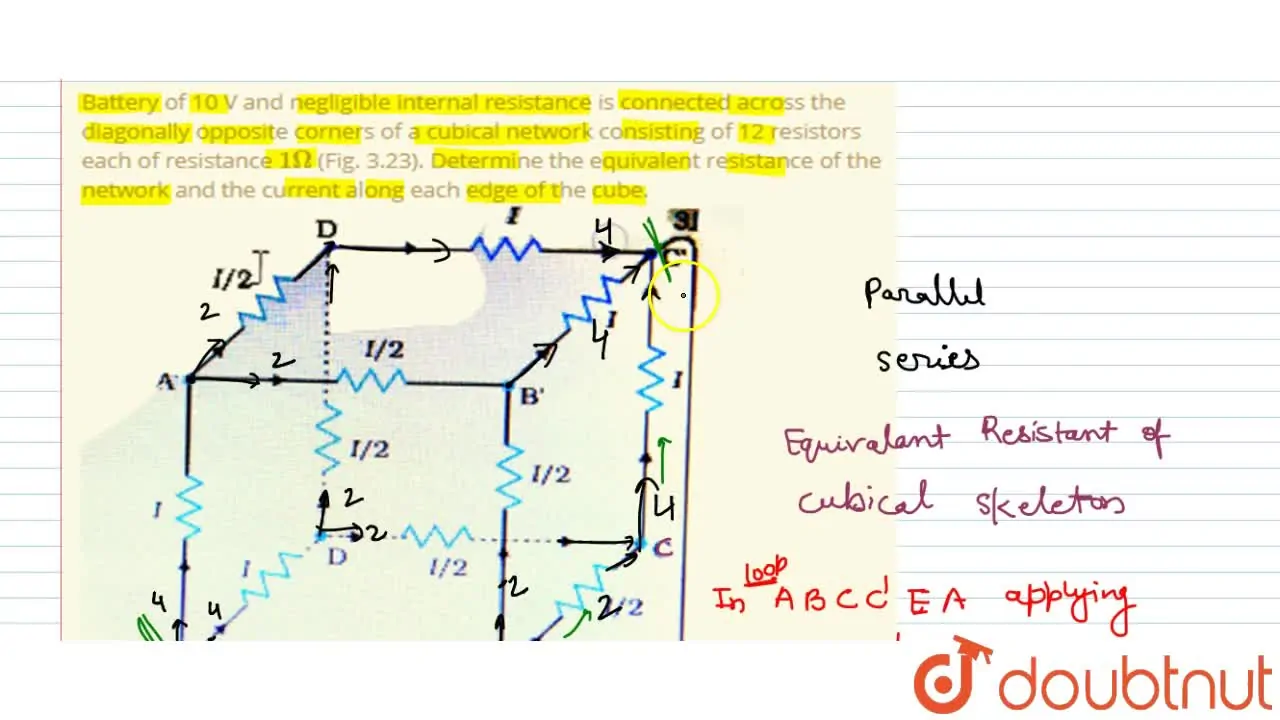 Battery of 10 V and negligible internal resistance is connected across the
diagonally opposite corners of a cubical network consisting of 12 resistors
each of resistance 1Ω (Fig. 3.23). Determine the equivalent resistance of the
network and the current along each edge of the cube.
D I 4 3I
I/2
2 I
4
2 I/2
A' B'
I
I/2 I/2
I 2 4
2 D I/2 C
I
4 4 2 2 /2
Parallel
series
Equivalent Resistant of
cubical skeleton
loop
In ABCC'EA applying
doubtnut